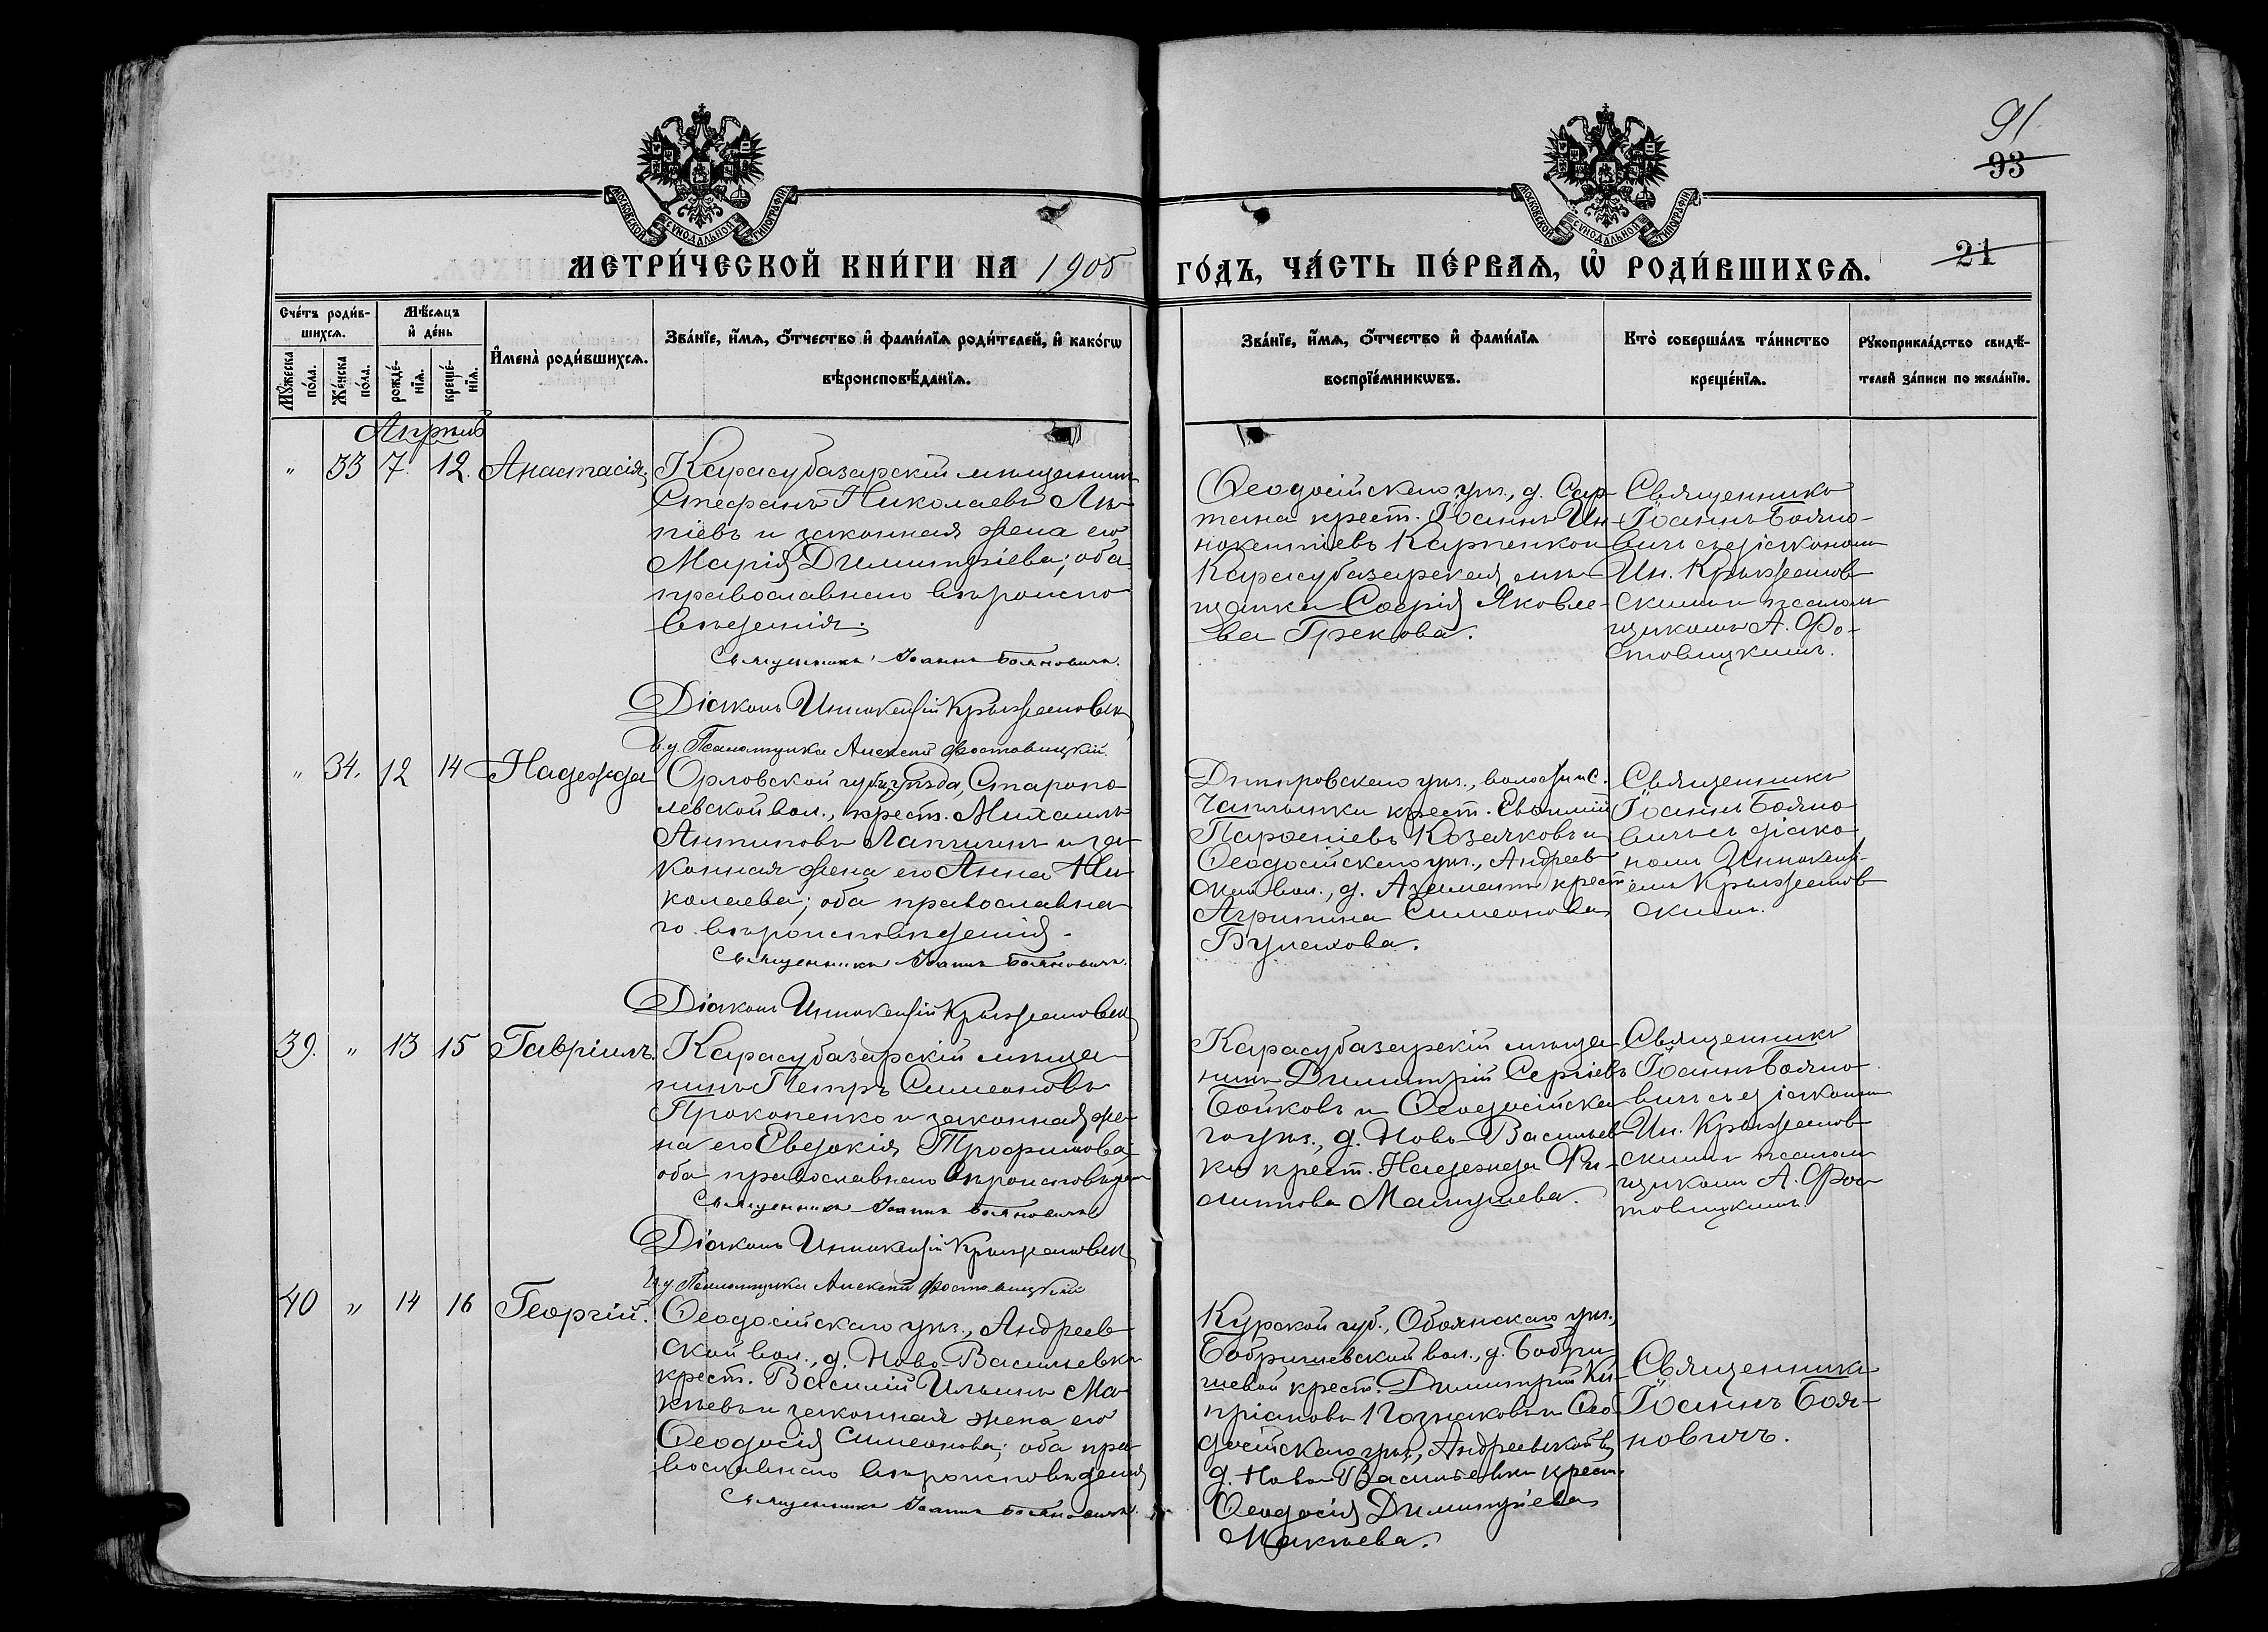 91
93
МОСКОВСКОЙ СѴНОДАЛЬНОЙ ТИПОГРАФІИ
МОСКОВСКОЙ СѴНОДАЛЬНОЙ ТИПОГРАФІИ
МЕТРИ́ЧЕСКОЙ КНИ́ГИ НА 1905 ГО́ДЪ, ЧА́СТЬ ПЕ́РВАѦ, Ѡ҆ РОДИ́ВШИХСѦ. 21
Сче́тъ роди́в-
шихсѧ.
Мꙋ́жеска по́ла.
Же́нска по́ла.
Мѣ́сѧцъ
и҆ де́нь
рожде́-
нїѧ.
креще́-
нїѧ.
И҆мена̀ роди́вшихсѧ.
Зва́нїе, и҆́мѧ, ѻ҆́тчество и҆ фами́лїѧ роди́телей, и҆ како́гѡ
вѣроисповѣ́данїѧ.
Зва́нїе, и҆́мѧ, ѻ҆́тчество и҆ фами́лїѧ
воспрїе́мникѡвъ.
Кто̀ соверша́лъ та́инство
креще́нїѧ.
Рꙋкоприкла́дство свидѣ́-
телей за́писи по жела́нїю.
Апрѣль
" 33 7. 12. Анастасія
Карасубазарскій мѣщанинъ
Стефанъ Николаевъ
и законная жена его
Марія Димитріева; оба
православнаго вѣроиспо
вѣданія.
Священникъ Іоаннъ Бояновичъ.
Діаконъ Иннокентій Крыжановскій
И. д. Псаломщика Алексій Фостовицкій
Ѳеодосійскаго уѣз., д. Сар-
тана крест. Іоаннъ Ин-
нокентіевъ Карпенко и
Карасубазарская мѣ-
щанка Софія Яковле-
ва Грекова.
Священникъ
Іоаннъ Бояно-
вичъ съ діакономъ
Ин. Крыжанов-
скимъ и псалом
щикомъ А. Фо-
стовицкимъ.
" 34. 12 14 Надежда
Орловской губ., уѣзда, Старопо-
левской вол., крест. Михаилъ
Антиповъ Лапшинъ и за-
конная жена его Анна Ни
колаева; оба православна
го вѣроисповѣданія.
Священникъ Іоаннъ Бояновичъ.
Діаконъ Иннокентій Крыжановскій
Днѣпровскаго уѣз., волости и с.
Чаплынки крест. Евѳимій
Парѳеніевъ Козачковъ и
Ѳеодосійскаго уѣз., Андреев-
ской вол., д. Азаматъ крест.
Агрипина Симеонова
Булахова.
Священникъ
Іоаннъ Бояно
вичъ съ діако
номъ Иннокенті-
емъ Крыжанов
скимъ.
39. " 13 15 Гавріилъ.
Карасубазарскій мѣща-
нинъ Петръ Симеоновъ
Прокопенко и законная же-
на его Евдокія Трофимова;
оба православнаго вѣроисповѣданія
Священникъ Іоаннъ Бояновичъ
Діаконъ Иннокентій Крыжановскій
И. д. Псаломщика Алексій Фостовицкій
Карасубазарскій мѣща-
нинъ Димитрій Сергіевъ
Бойковъ и Ѳеодосійска
го уѣз., д. Ново-Васильев-
ки крест. Надежда Фи-
липпова
Священникъ
Іоаннъ Бояно
вичъ съ діакономъ
Ин. Крыжанов
скимъ и псалом
щикомъ А. Фос
товицкимъ.
40 " 14 16 Георгій.
Ѳеодосійскаго уѣз., Андреев-
ской вол., д. Ново-Васильевки
крест. Василій Ильинъ Мо
кѣевъ и законная жена его
Ѳеодосія Симеонова; оба пра
вославнаго вѣроисповѣданія
Священникъ Іоаннъ Бояновичъ.
Курской губ., Обоянскаго уѣз.,
Бобришевской вол., д. Бобри
шевой крест. Димитрій Ки-
пріановъ Познаковъ и Ѳео-
досійскаго уѣз., Андреевской в.,
д. Ново-Васильевки крест.
Ѳеодосія Димитріева
Мокѣева.
Священникъ
Іоаннъ Боя-
новичъ.